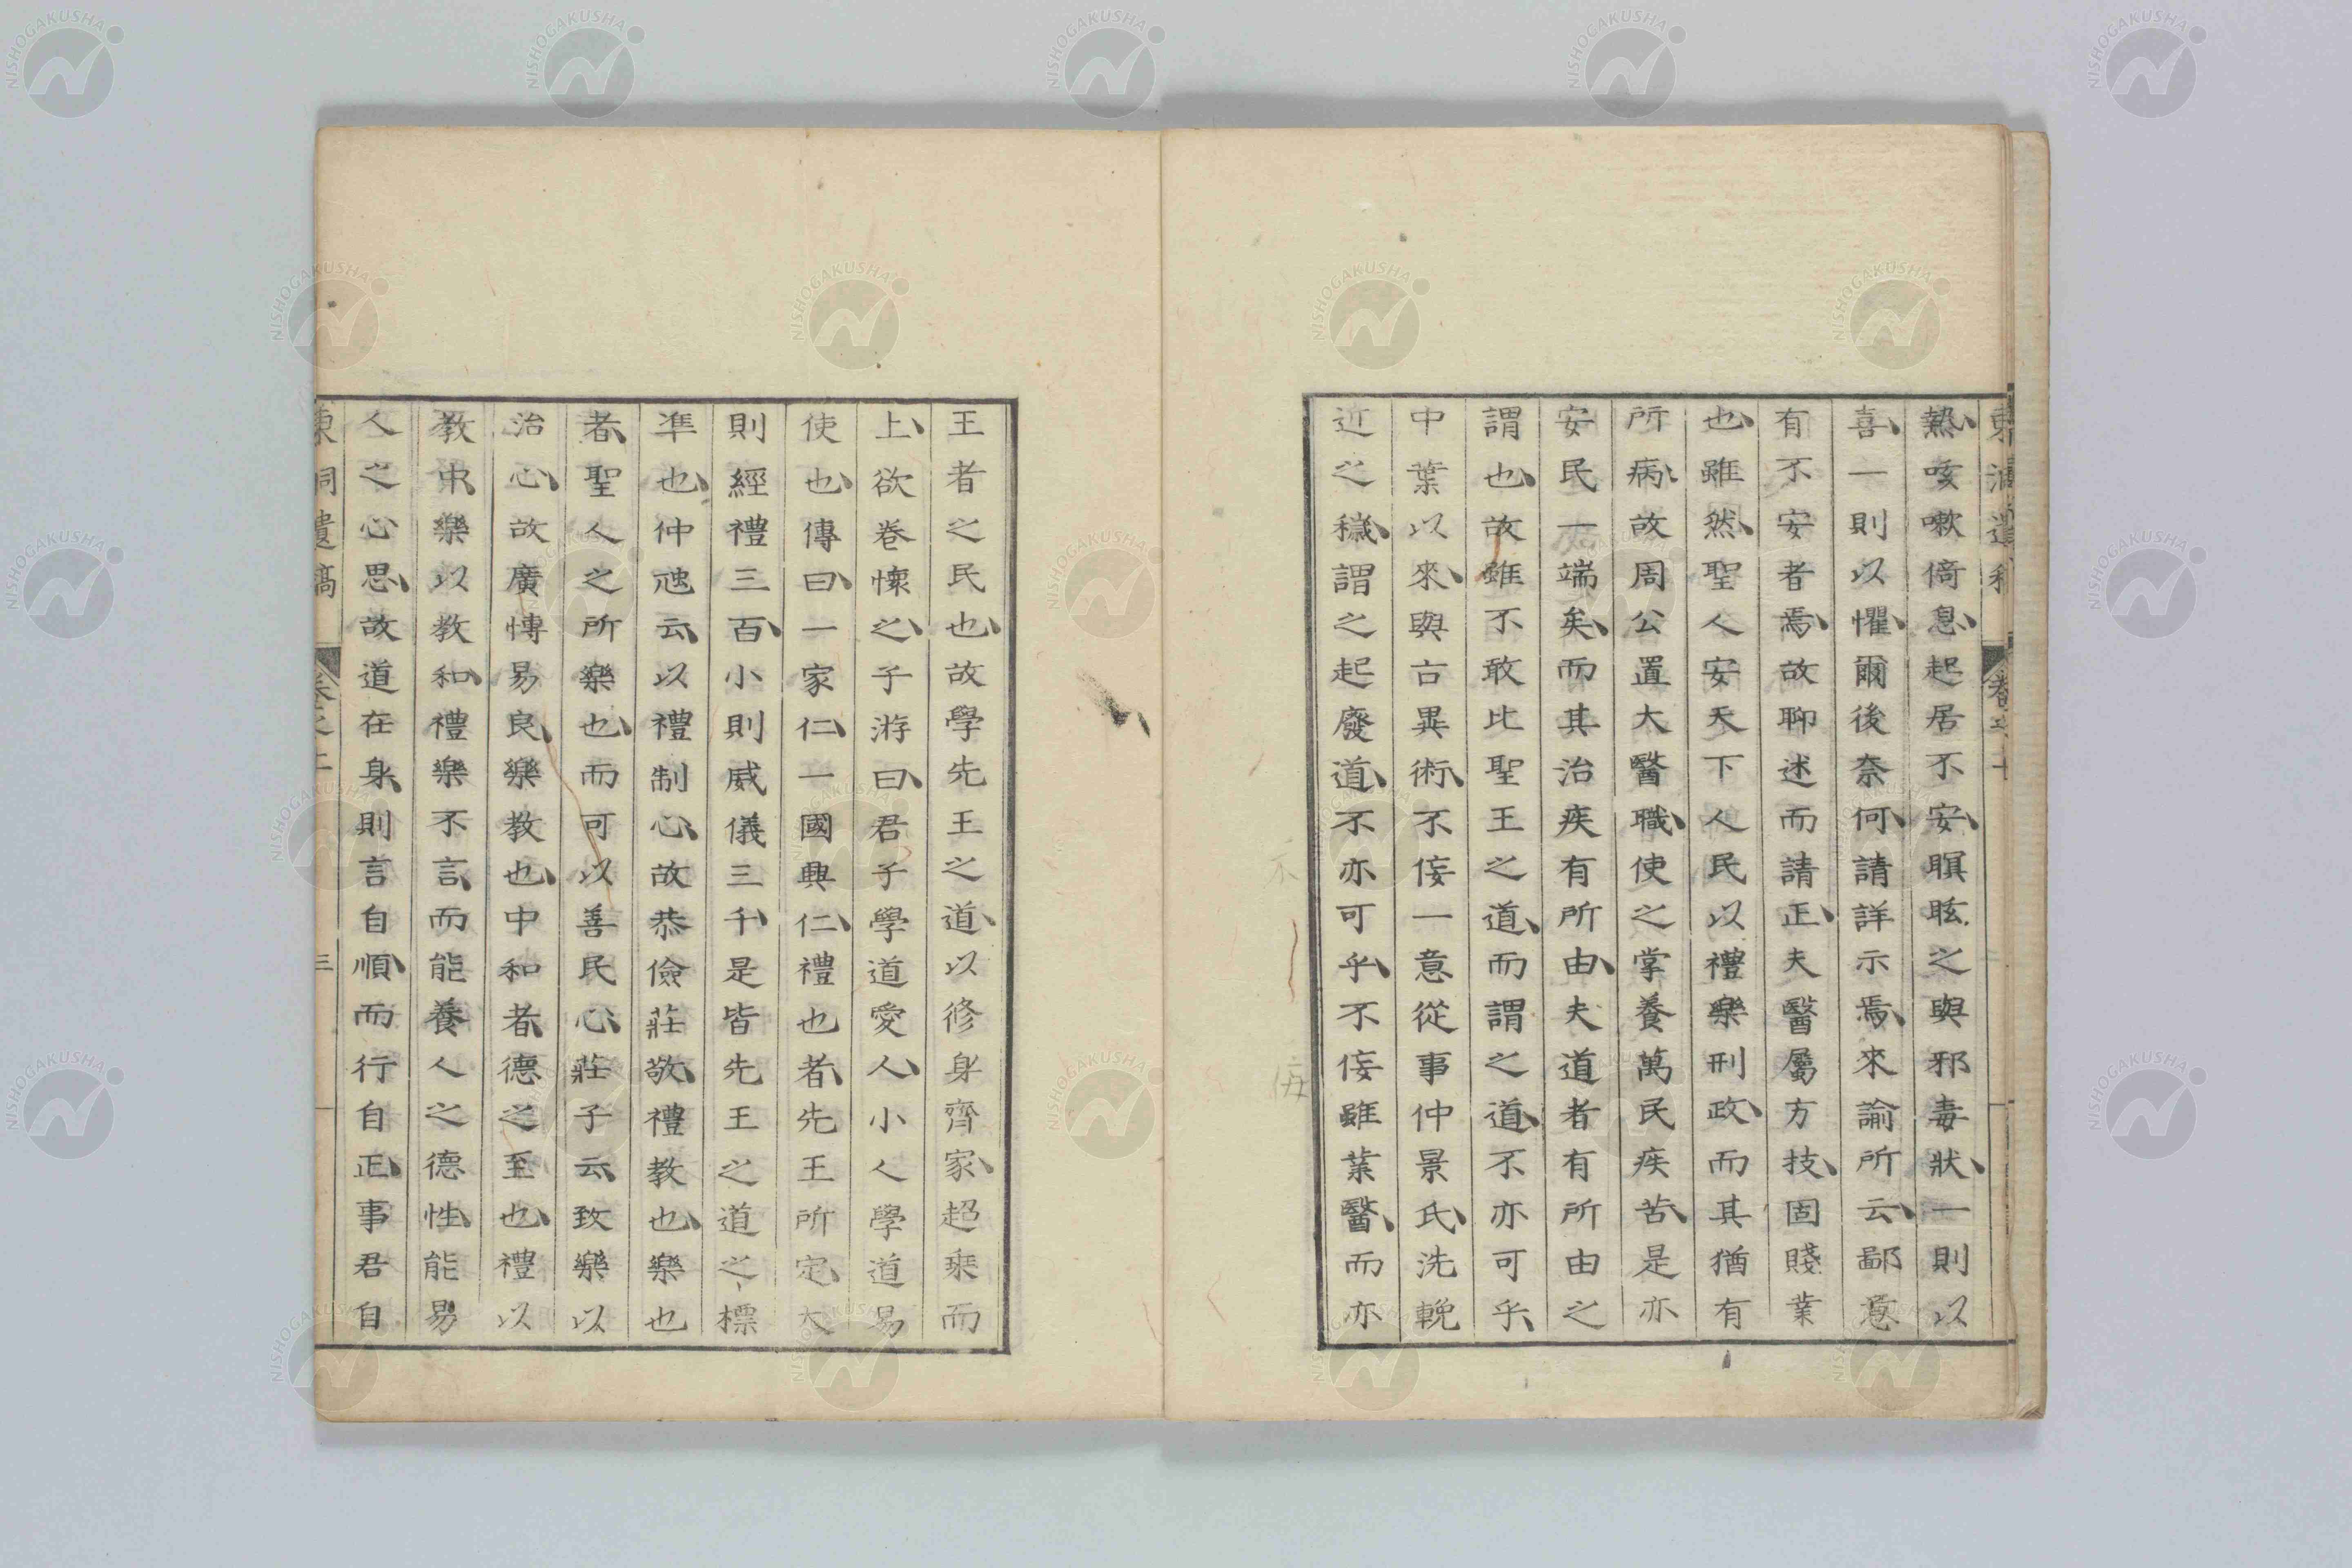 東洞遺稿 卷之上
熱、咳嗽倚息、起居不安、瞑眩之與邪毒狀、一則以
喜、一則以懼、爾後奈何、請詳示焉、來諭所云、鄙意
有不安者焉、故聊述而請正、夫醫屬方技、固賤業
也、雖然、聖人安天下人民以禮樂刑政、而其猶有
所病、故周公置大醫職、使之掌養萬民疾苦、是亦
安民一端矣、而其治疾有所由、夫道者有所由之
謂也、故雖不敢比聖王之道、而謂之道、不亦可乎、
中葉以來、與古異術、不佞一意從事仲景氏、洗輓
近之穢、謂之起廢道、不亦可乎、不佞雖業醫、而亦
王者之民也、故學先王之道、以修身齊家、超乘而
上、欲卷懷之、子游曰、君子學道愛人、小人學道易
使也、傳曰、一家仁、一國興仁、禮也者、先王所定、大
則經禮三百、小則威儀三千、是皆先王之道之標
準也、仲虺云、以禮制心、故恭儉莊敬、禮教也、樂也
者、聖人之所樂也、而可以善民心、莊子云、致樂以
治心、故廣博易良、樂教也、中和者、德之至也、禮以
教中、樂以教和、禮樂不言、而能養人之德性、能易
人之心思、故道在身、則言自順、而行自正、事君自
東洞遺稿 卷之上 三
NISHOGAKUSHA